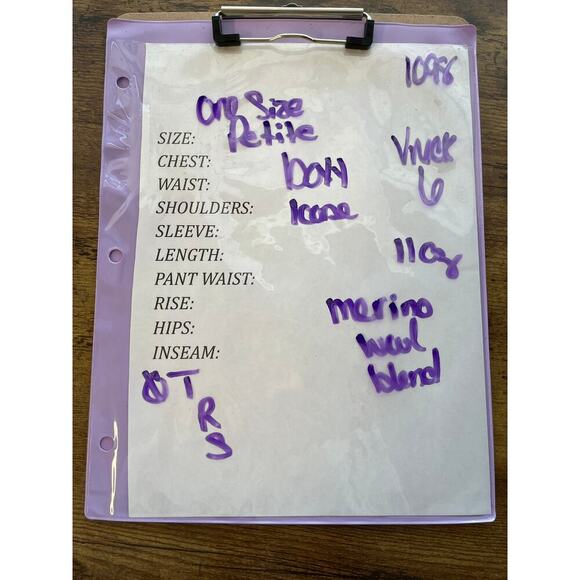 1098
One Size
SIZE: Petite
CHEST:
WAIST:
SHOULDERS:
SLEEVE:
LENGTH:
PANT WAIST:
RISE:
HIPS:
INSEAM:
loose
6
11oz
merino
wool
blend
T
R
S